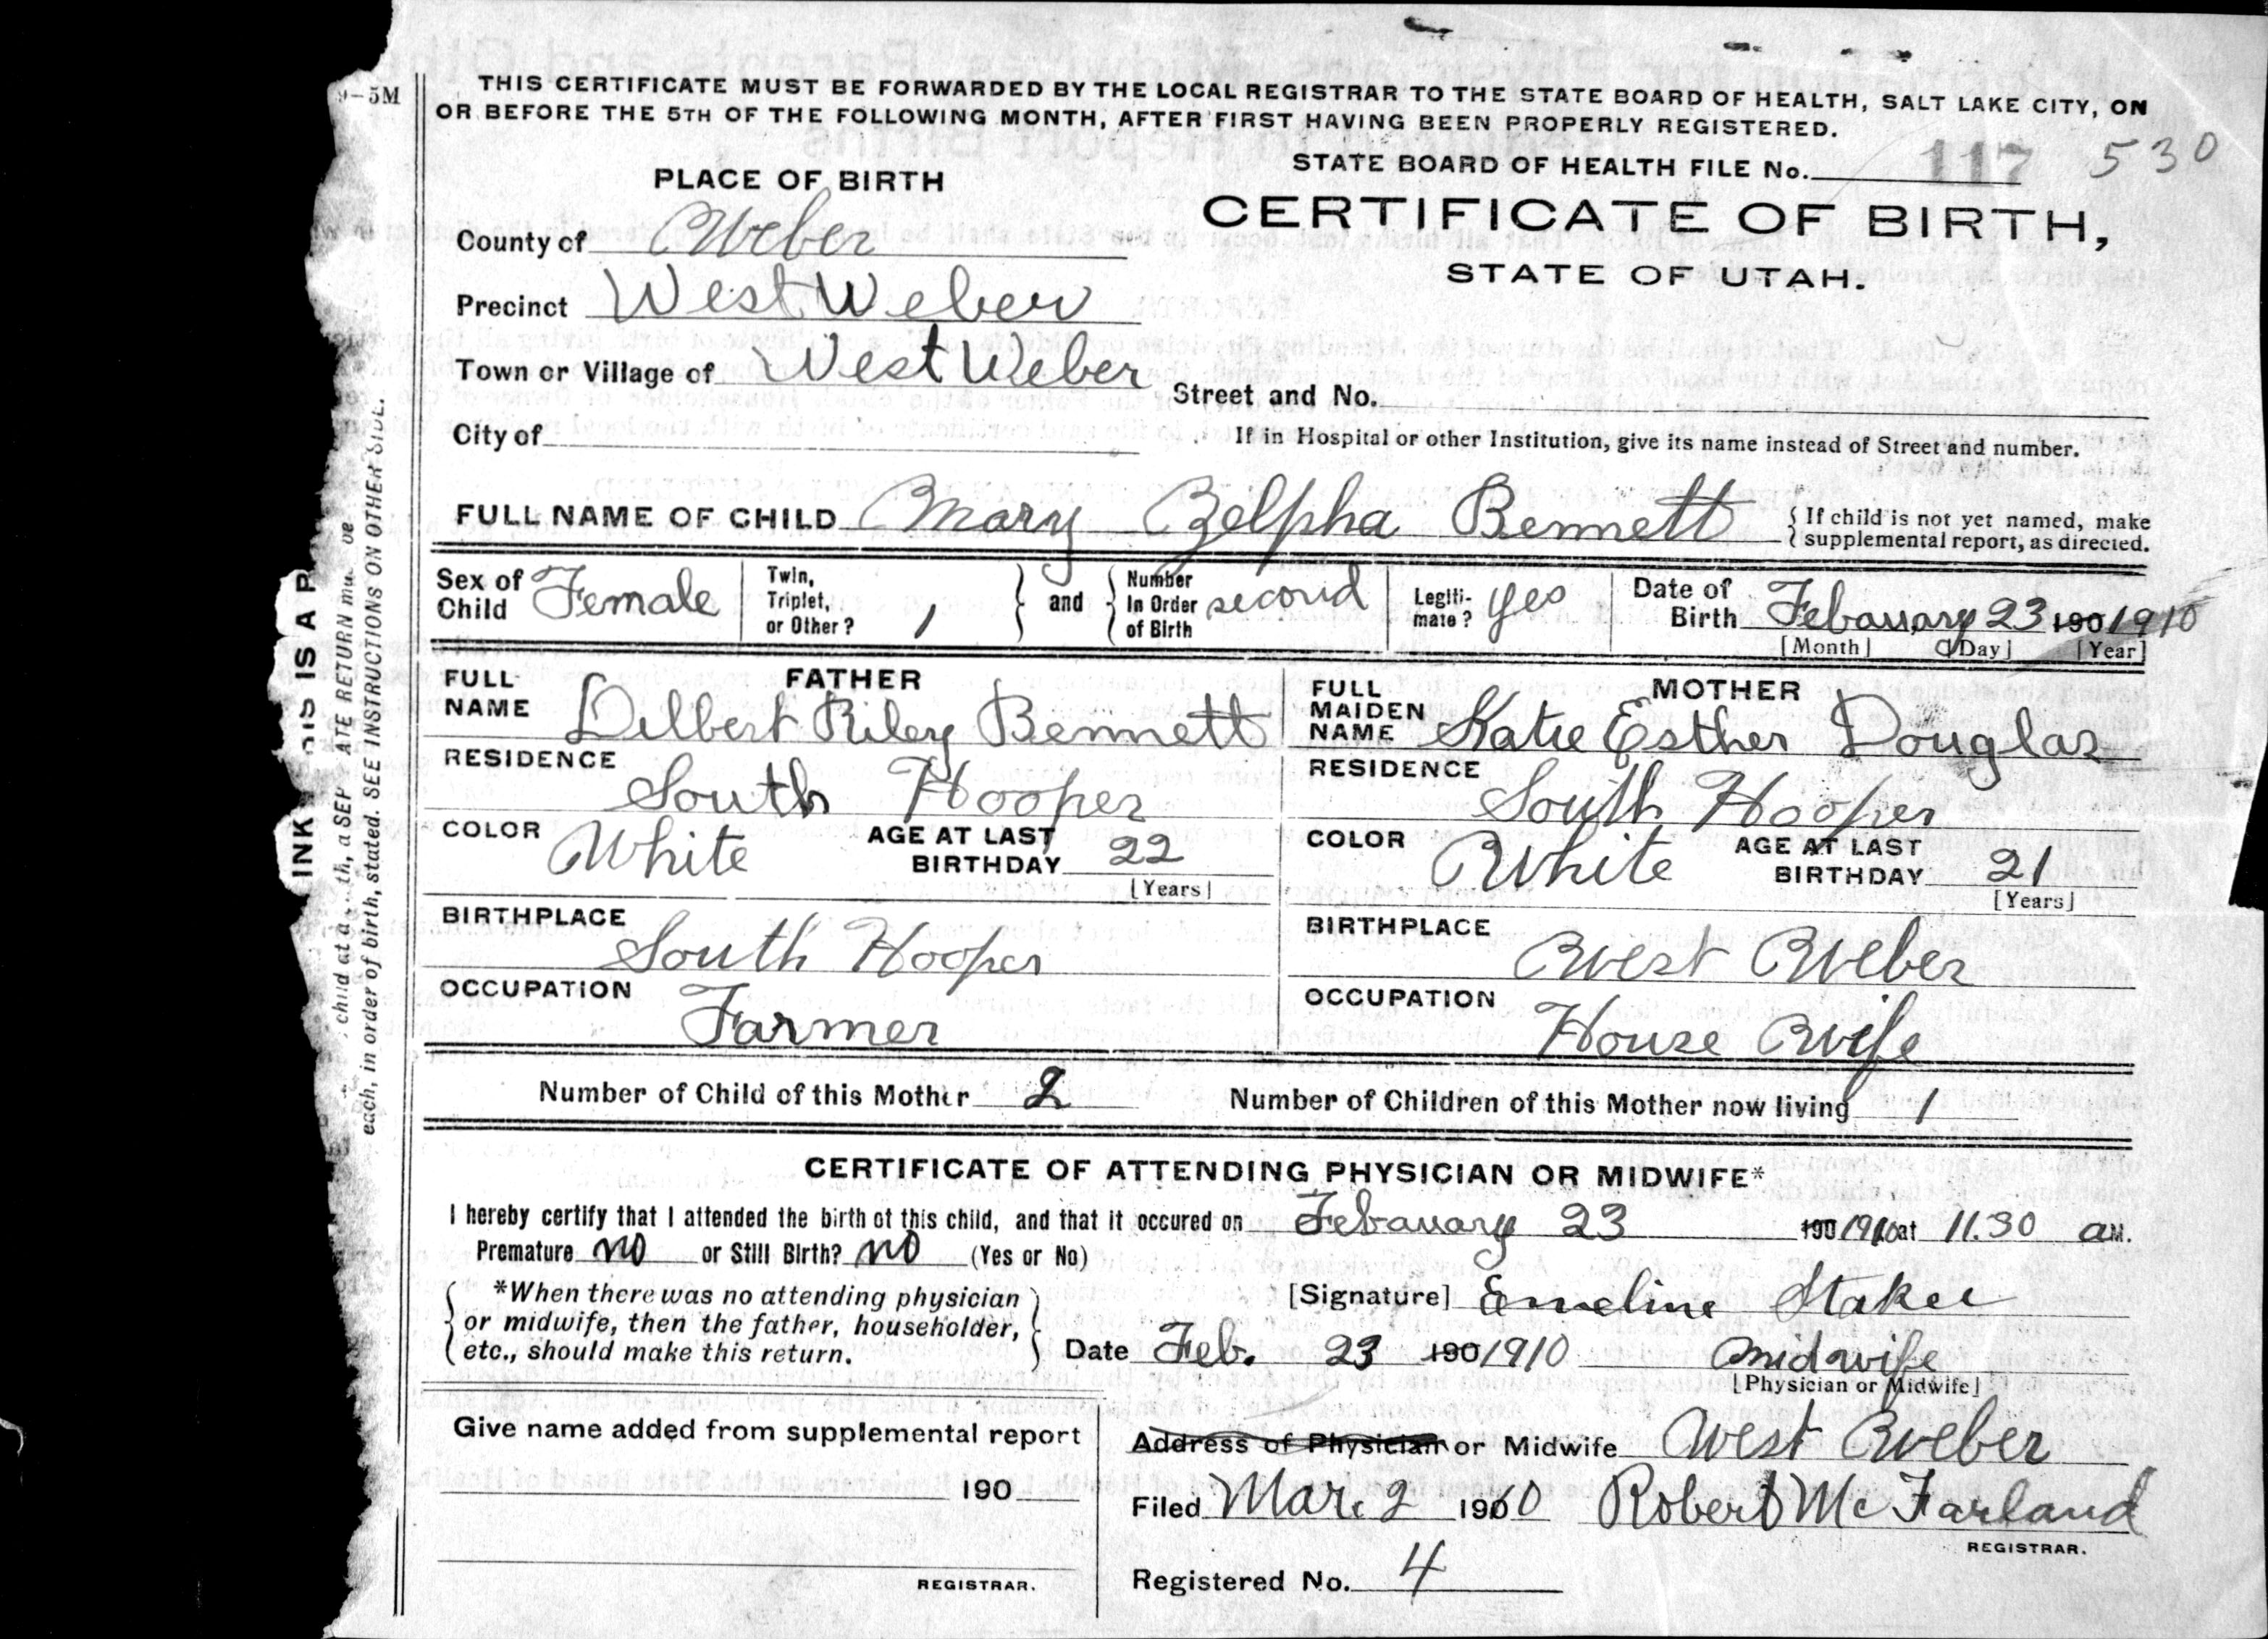 9-5M
THIS CERTIFICATE MUST BE FORWARDED BY THE LOCAL REGISTRAR TO THE STATE BOARD OF HEALTH, SALT LAKE CITY, ON
OR BEFORE THE 5TH OF THE FOLLOWING MONTH, AFTER FIRST HAVING BEEN PROPERLY REGISTERED.
STATE BOARD OF HEALTH FILE No. 117 530
PLACE OF BIRTH
CERTIFICATE OF BIRTH,
STATE OF UTAH.
County of Weber
Precinct West Weber
Town or Village of West Weber
Street and No.
City of
If in Hospital or other Institution, give its name instead of Street and number.
FULL NAME OF CHILD Mary Zelpha Bennett { If child is not yet named, make
supplemental report, as directed.
Sex of Child Female
Twin, Triplet, or Other? 1
and
Number In Order of Birth second
Legiti- mate? yes
Date of Birth Febauary 23 190 1910
[Month] [Day] [Year]
FATHER
FULL NAME Dilbert Riley Bennett
RESIDENCE
South Hooper
COLOR White AGE AT LAST BIRTHDAY 22
[Years]
BIRTHPLACE
South Hooper
OCCUPATION
Farmer
MOTHER
FULL MAIDEN NAME Katie Esther Douglas
RESIDENCE
South Hooper
COLOR White AGE AT LAST BIRTHDAY 21
[Years]
BIRTHPLACE
West Weber
OCCUPATION
House Wife
Number of Child of this Mother 2 Number of Children of this Mother now living 1
CERTIFICATE OF ATTENDING PHYSICIAN OR MIDWIFE*
I hereby certify that I attended the birth of this child, and that it occured on Febauary 23 190 1910 at 11.30 a M.
Premature no or Still Birth? no (Yes or No)
*When there was no attending physician
or midwife, then the father, householder,
etc., should make this return.
[Signature] Emeline Staker
Date Feb. 23 190 1910 midwife
[Physician or Midwife]
Give name added from supplemental report
190
REGISTRAR.
Address of Physician or Midwife West Weber
Filed Mar. 2 1910 Robert McFarland
REGISTRAR.
Registered No. 4
INK IS IS A P
child at a th, a SEP ATE RETURN mu ve
each, in order of birth, stated. SEE INSTRUCTIONS ON OTHER SIDE.